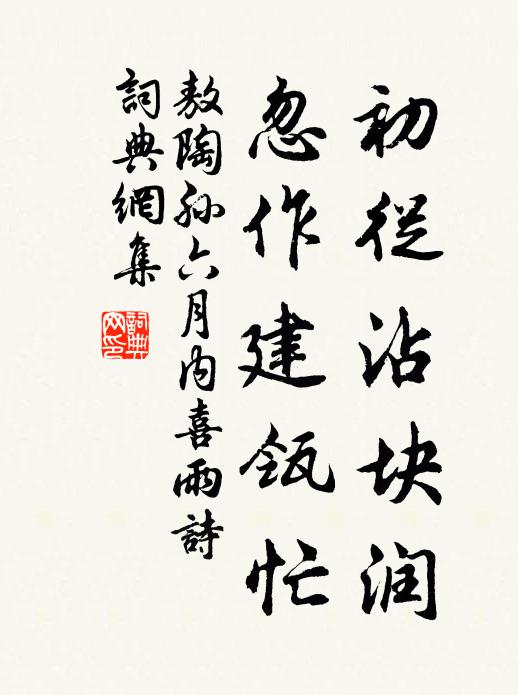 初從沾块润
忽作建瓴忙
敖陶孫六月内喜雨詩
詞典網集
詞典網印